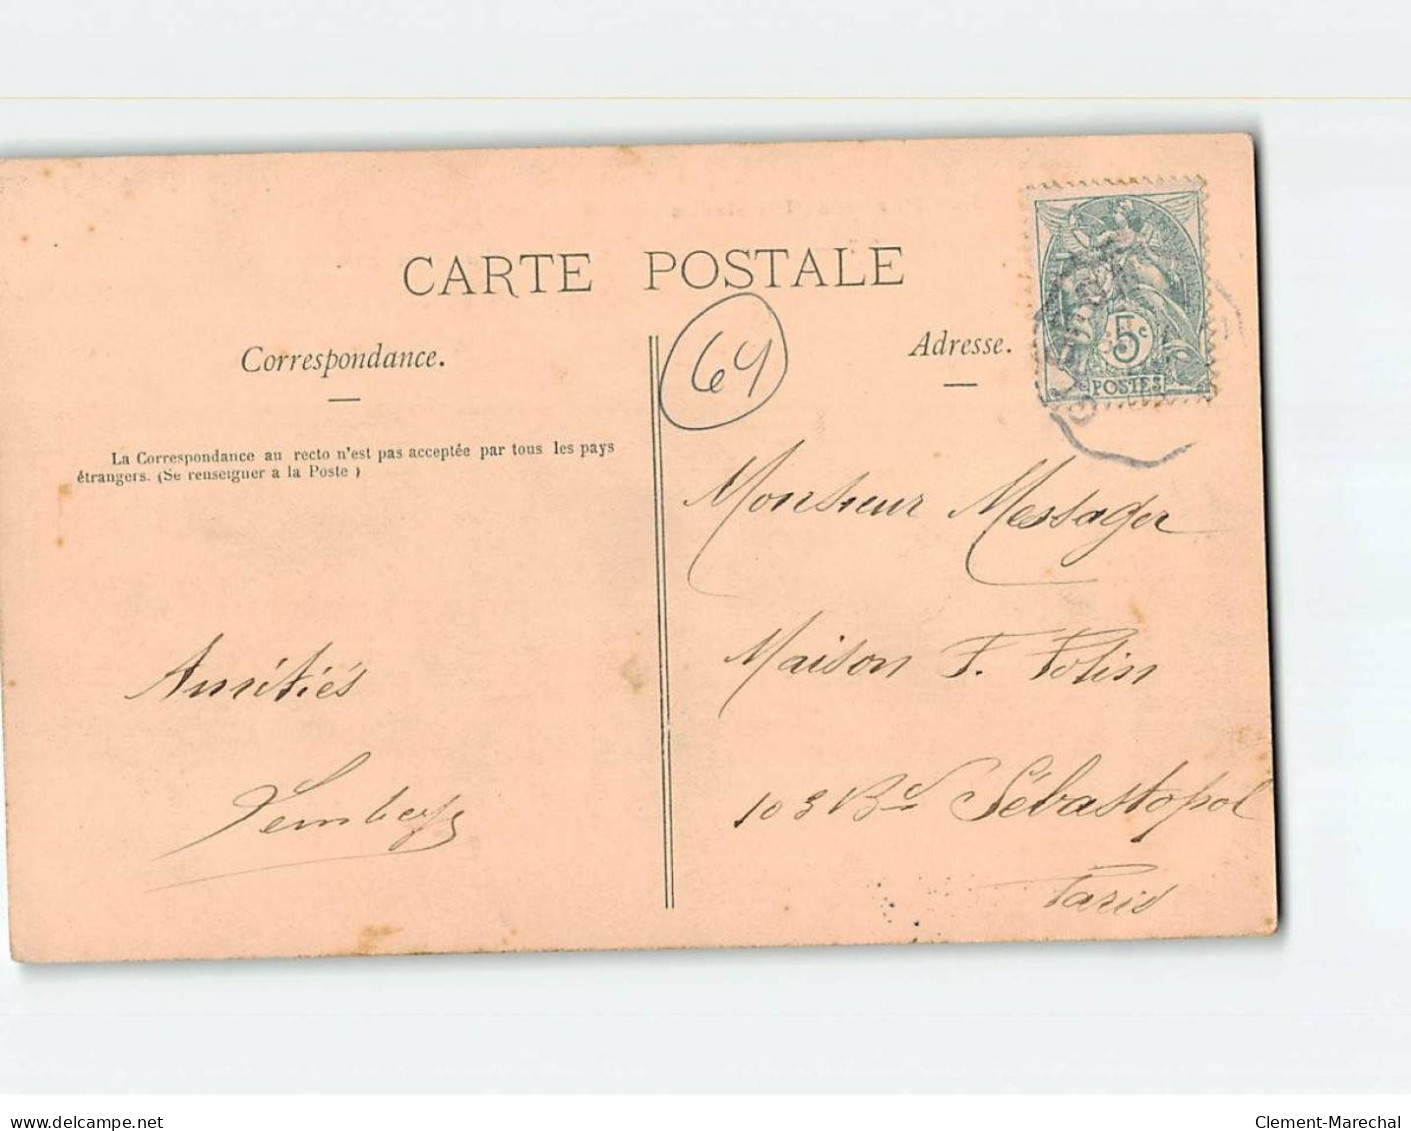 CARTE POSTALE
Correspondance.
64
Adresse.
5c
POSTES
La Correspondance au recto n'est pas acceptée par tous les pays
étrangers. (Se renseigner a la Poste )
Monsieur Messager
Maison F. Potin
103 Bd Sébastopol
Paris
Amitiés
www.delcampe.net
Clement-Marechal